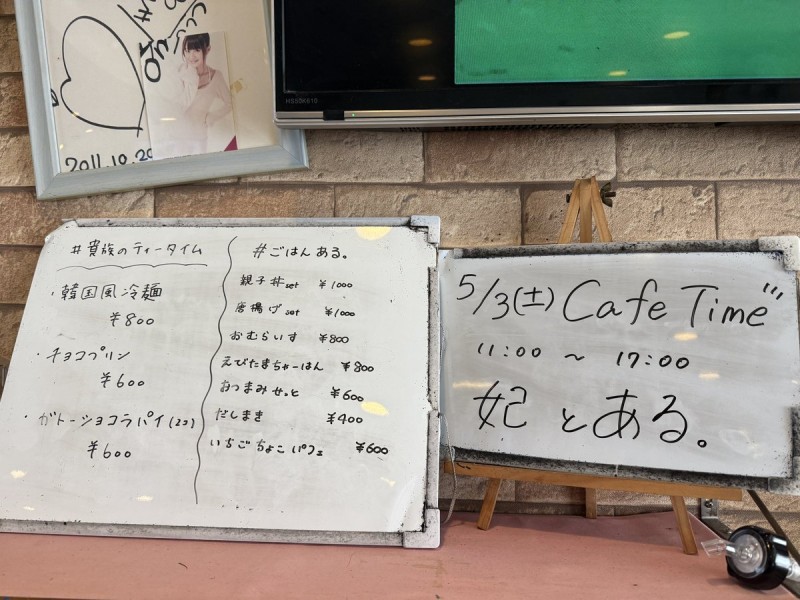 2011.10.20
#貴族のティータイム
・韓国風冷麺
¥800
・チョコプリン
¥600
・ガトーショコラパイ(2コ)
¥600
#ごはんある。
親子丼set ¥1000
唐揚げset ¥1000
おむらいす ¥800
えびたまちゃーはん ¥800
おつまみせっと ¥600
だしまき ¥400
いちごちょこパフェ ¥600
5/3(土) Cafe Time
11:00 ~ 17:00
妃とある。